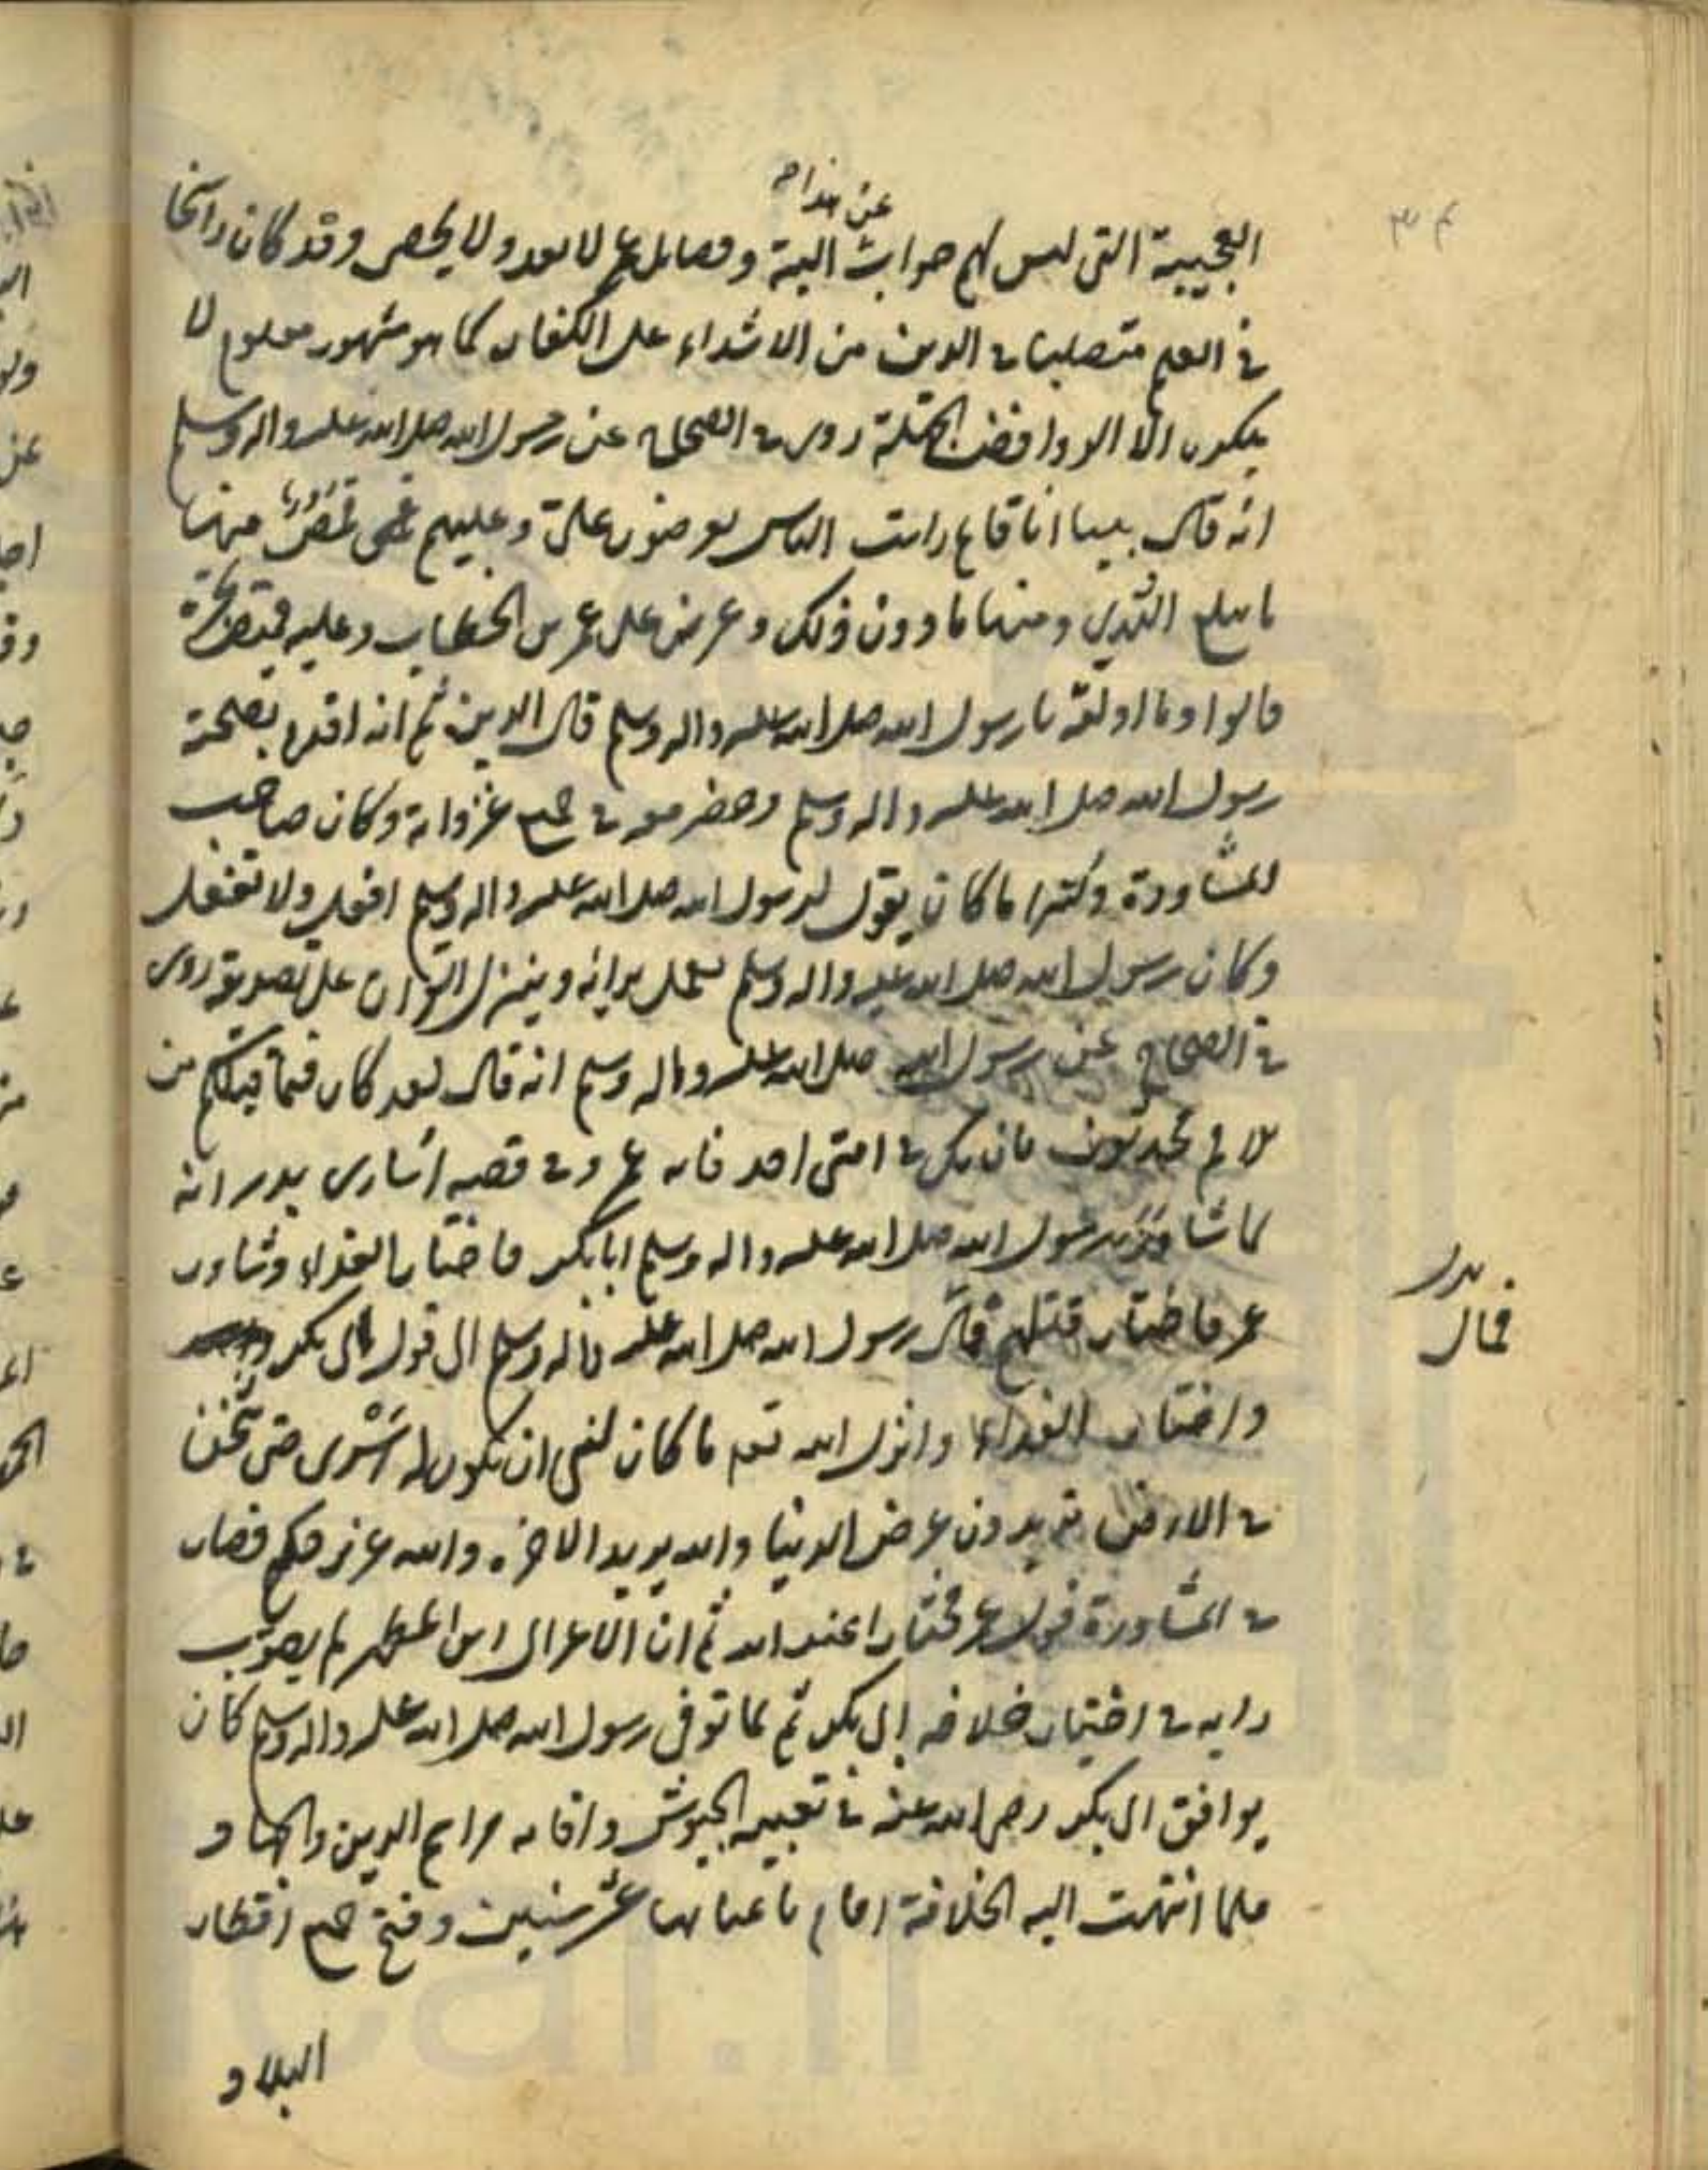 عن هذا
العجيبة التى ليس لهم جواب البتة وفضايل عمر لا تعد ولا يحصى وقد كان راسخا
فى العلم متصلبا فى الدين من الاشداء على الكفار كما هو مشهور معلوم لا
ينكره الا الروافض الجهلة روى فى الصحاح عن رسول الله صلى الله عليه واله وسلم
انه قال بينا انا نايم رايت الناس يعرضون على وعليهم قمص منها
ما يبلغ الثدي ومنها ما دون ذلك وعرض على عمر بن الخطاب وعليه قميص يجره
قالوا وما اولته يا رسول الله صلى الله عليه واله وسلم قال الدين ثم انه اقدم بصحبة
رسول الله صلى الله عليه واله وسلم وحضر معه فى جميع غزواته وكان صاحب
المشاورة وكثيرا ما كان يقول لرسول الله صلى الله عليه واله وسلم افعل ولا تفعل
وكان رسول الله صلى الله عليه واله وسلم يعمل برايه وينزل القران على تصويبه روى
فى الصحاح عن رسول الله صلى الله عليه واله وسلم انه قال لقد كان فيما قبلكم من
الامم محدثون فان يكن فى امتى احد فانه عمر وفى قصة اسارى بدر انه
لما شاور رسول الله صلى الله عليه واله وسلم ابا بكر فاختار الفداء وشاور
عمر فاختار قتلهم فمال رسول الله صلى الله عليه واله وسلم الى قول ابى بكر
واختار الفداء وانزل الله تعم ما كان لنبى ان يكون له اسرى حتى يثخن
فى الارض تريدون عرض الدنيا والله يريد الاخرة والله عزيز حكيم فصار
فى المشاورة قول عمر مختارا عند الله ثم ان الاعرابى ابن المطهر لم يصوب
رايه فى اختيار خلافه ابى بكر ثم لما توفى رسول الله صلى الله عليه واله وسلم كان
يوافق ابى بكر رضى الله عنه فى تعبيه الجيوش واقامه مراسم الدين والجهاد
فلما انتهت اليه الخلافة اقام باعبائها عشر سنين وفتح جميع اقطار
البلاد
بدل
فمال